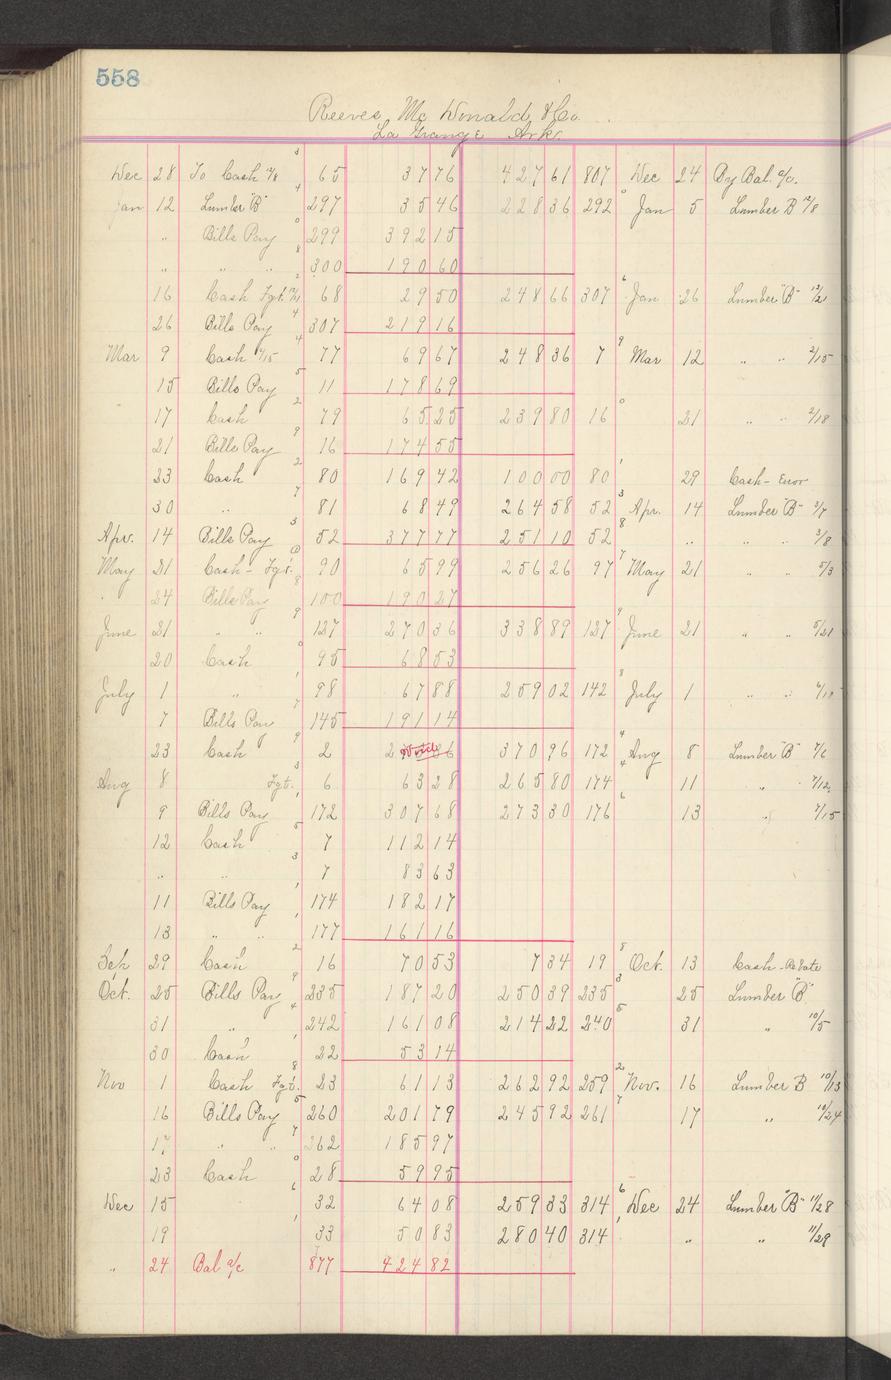 558
Reeves, McDonald & Co.
La Grange Ark.
Dec 28 To Cash 12/8 65 37 76 427 61 807 Dec 24 By Bal. a/c.
Jan 12 Lumber "B" 297 35 46 228 36 292 Jan 5 Lumber B 12/8
" Bills Pay 299 392 15
" " " 300 190 60
16 Cash Fgt. 68 29 50 248 66 307 Jan 26 Lumber "B" 12/21
26 Bills Pay 307 219 16
Mar 9 Cash 2/15 77 69 67 248 36 7 Mar 12 " " 2/15
15 Bills Pay 11 178 69
17 Cash 79 65 25 239 80 16 21 " " 2/18
21 Bills Pay 16 174 55
23 Cash 80 169 42 100 00 80 29 Cash - Error
30 " 81 68 49 264 58 52 Apr. 14 Lumber "B" 3/7
Apr. 14 Bills Pay 52 377 77 251 10 52 " " " 3/8
May 21 Cash - Fgt. 90 65 99 256 26 97 May 21 " " 5/3
" 24 Bills Pay 100 190 27
June 21 " " 127 270 36 338 89 127 June 21 " " 5/21
20 Cash 95 68 53
July 1 " 98 67 88 259 02 142 July 1 " "
7 Bills Pay 145 191 14
23 Cash 2 370 96 172 Aug 8 Lumber "B" 7/6
Aug 8 Fgt. 6 63 28 265 80 174 11 " 7/12
9 Bills Pay 172 307 68 273 30 176 13 " 7/15
12 Cash 7 112 14
" " 7 83 63
11 Bills Pay 174 182 17
13 " " 177 161 16
Sep 29 Cash 16 70 53 7 34 19 Oct. 13 Cash - Rebate
Oct. 25 Bills Pay 235 187 20 250 39 235 25 Lumber "B"
31 " 242 161 08 214 22 240 31 " 10/5
30 Cash 22 53 14
Nov 1 Cash Fgt. 23 61 13 262 92 259 Nov. 16 Lumber B 10/13
16 Bills Pay 260 201 79 245 92 261 17 " 10/24
17 " " 262 185 97
23 Cash 28 59 95
Dec 15 32 64 08 259 33 314 Dec 24 Lumber "B" 11/28
19 33 50 83 280 40 314 " " 11/29
" 24 Bal a/c 877 424 82